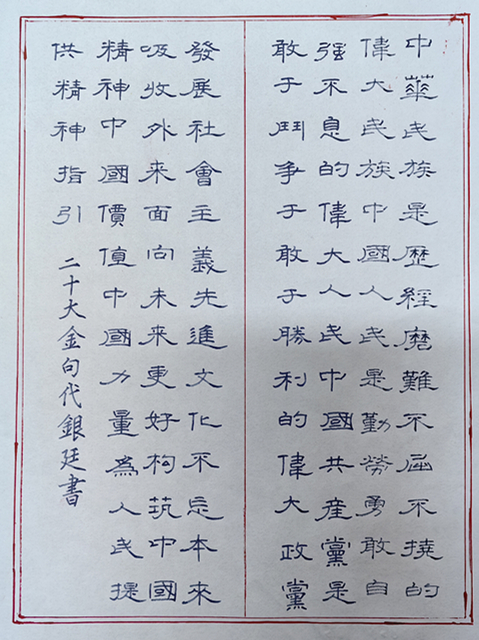 中華民族是歷經磨難不屈不撓的
偉大民族中國人民是勤勞勇敢自
强不息的偉大人民中國共産黨是
敢于鬥争于敢于勝利的偉大政黨
發展社會主義先進文化不忘本來
吸收外來面向未來更好构筑中國
精神中國價值中國力量為人民提
供精神指引 二十大金句代銀廷書